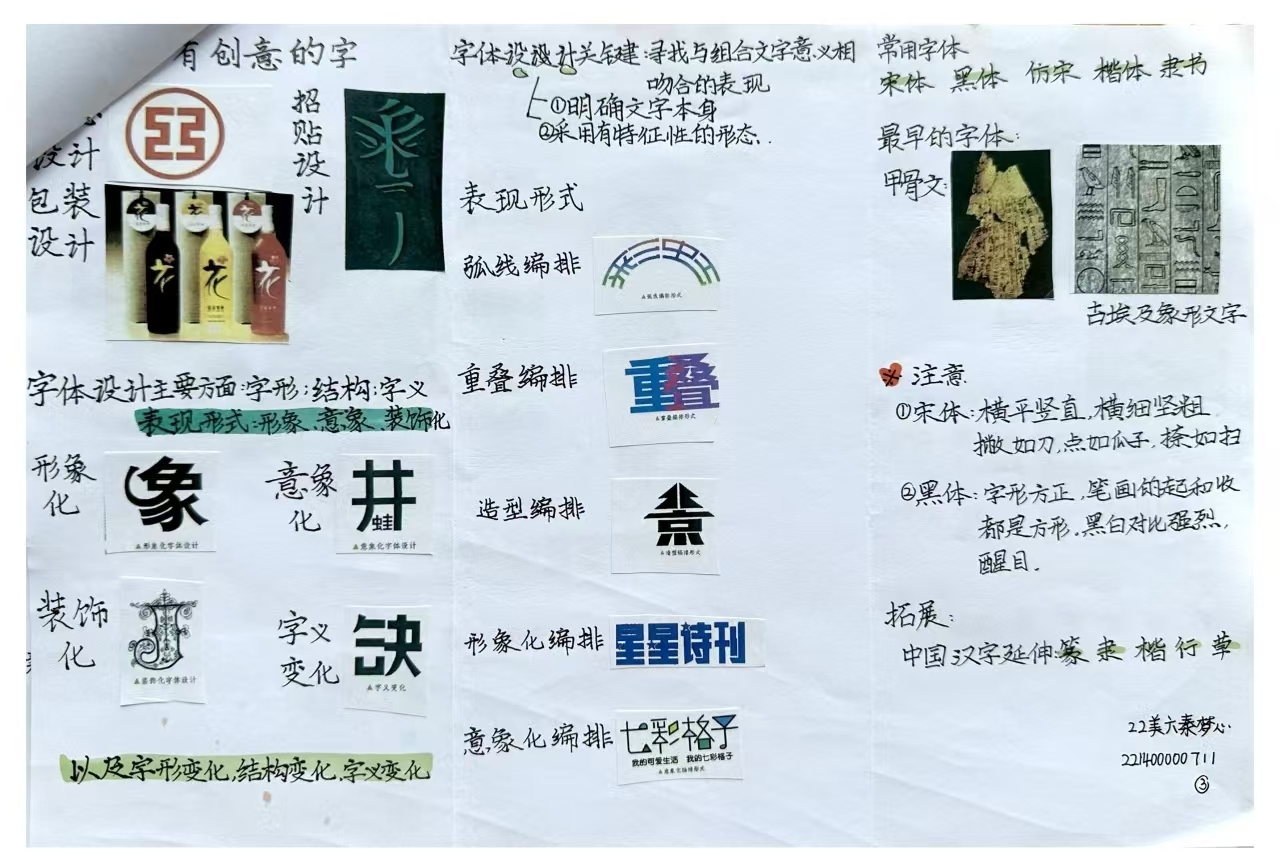 有创意的字
设计
招贴设计
包装设计
花
花
花
字体设计主要方面:字形;结构;字义
表现形式:形象、意象、装饰化
形象化
象
▲形象化字体设计
意象化
井
蛙
▲意象化字体设计
装饰化
J
▲装饰化字体设计
字义变化
缺
▲字义变化
以及字形变化,结构变化,字义变化
字体设设计关键建:寻找与组合文字意义相
吻合的表现
①明确文字本身
②采用有特征性的形态.
表现形式
弧线编排
▲弧线编排形式
重叠编排
重叠
▲重叠编排形式
造型编排
景
▲造型编排形式
形象化编排
星星诗刊
意象化编排
七彩格子
我的可爱生活 我的七彩格子
▲意象化编排形式
常用字体
宋体 黑体 仿宋 楷体 隶书
最早的字体:
甲骨文:
古埃及象形文字
※ 注意.
①宋体:横平竖直,横细竖粗
撇如刀,点如瓜子,捺如扫
②黑体:字形方正,笔画的起和收
都是方形,黑白对比强烈,
醒目.
拓展:
中国汉字延伸:篆 隶 楷 行 草
22美六秦梦心
221400000711
③